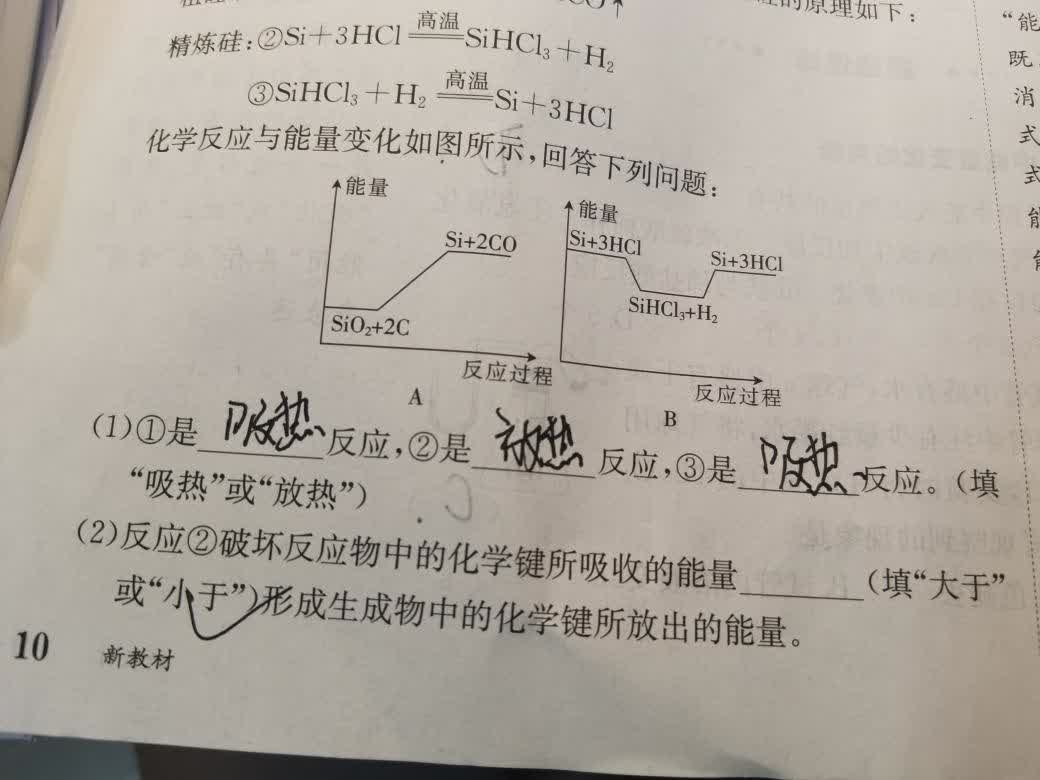 的原理如下：
精炼硅：②Si+3HCl 高温 SiHCl₃+H₂
③SiHCl₃+H₂ 高温 Si+3HCl
化学反应与能量变化如图所示，回答下列问题：
能量
Si+2CO
SiO₂+2C
反应过程
A
能量
Si+3HCl
Si+3HCl
SiHCl₃+H₂
反应过程
B
(1)①是 吸热 反应，②是 放热 反应，③是 吸热 反应。(填
“吸热”或“放热”)
(2)反应②破坏反应物中的化学键所吸收的能量______(填“大于”
或“小于”)形成生成物中的化学键所放出的能量。
10 新教材
“能
既
消
式
式
能